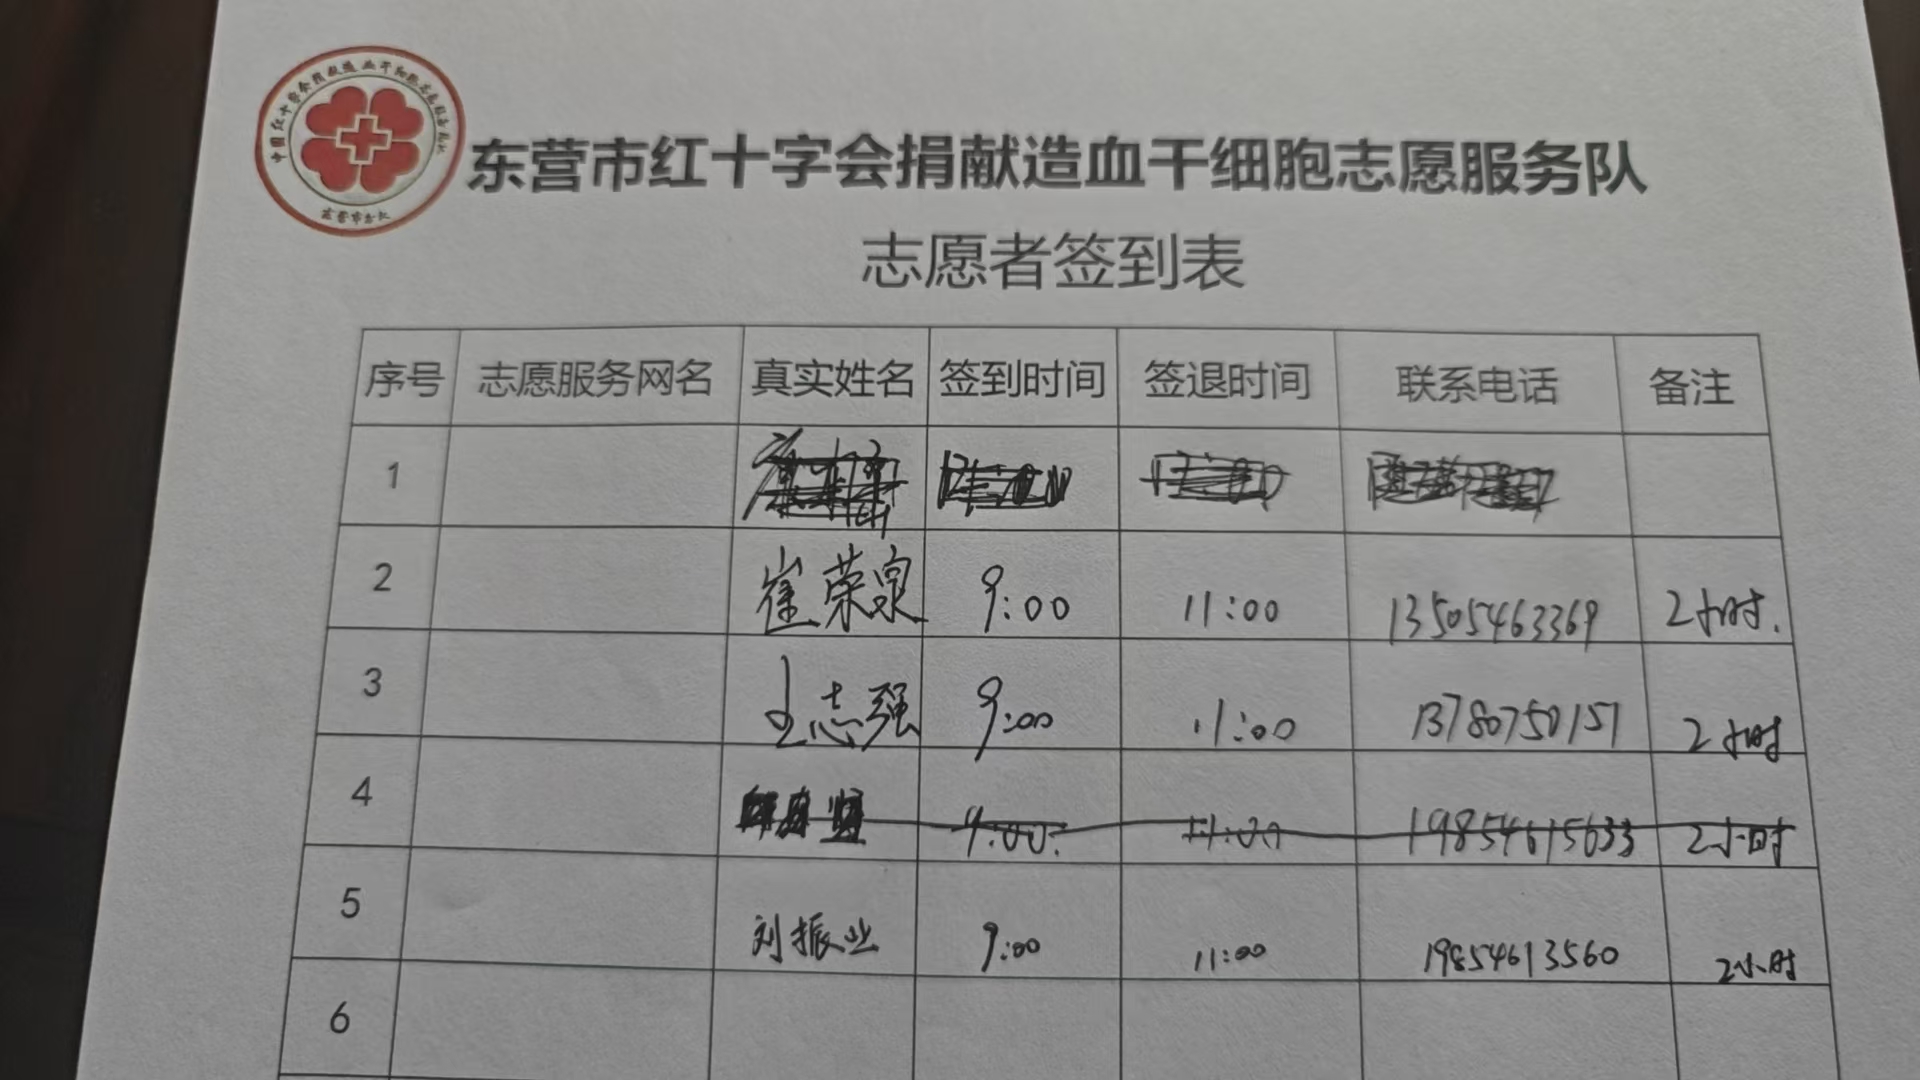 东营市红十字会捐献造血干细胞志愿服务队
志愿者签到表
序号 志愿服务网名 真实姓名 签到时间 签退时间 联系电话 备注
1
2 崔荣泉 9:00 11:00 13505463369 2小时.
3 王志强 9:00 11:00 13780750151 2小时
4 9:00 11:00 19854615633 2小时
5 刘振业 9:00 11:00 19854613560 2小时
6